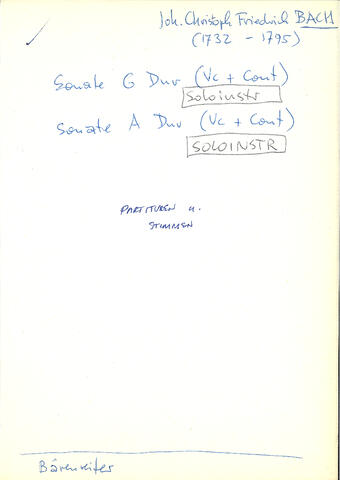 Joh. Christoph Friedrich BACH
(1732 - 1795)
Sonate G Dur (Vc + Cont)
Soloinstr
Sonate A Dur (Vc + Cont)
SOLOINSTR
PARTITUREN u.
STIMMEN
Bärenreiter